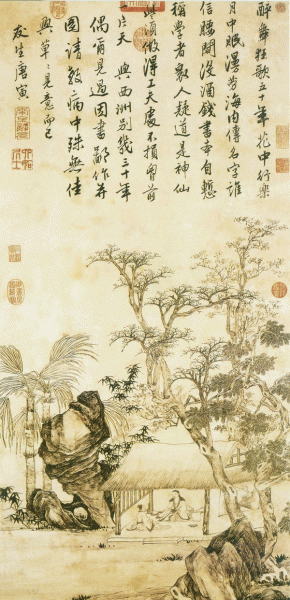 醉舞狂歌五十年花中行樂
月中眠漫勞海內傳名字誰
信腰間沒酒錢書本自慙
稱學者衆人疑道是神仙
些須做得工夫處不損胸前
一片天 與西洲別幾三十年
偶爾見過因書鄙作并
圖請教病中殊無佳
興草草見意而已
友生唐寅